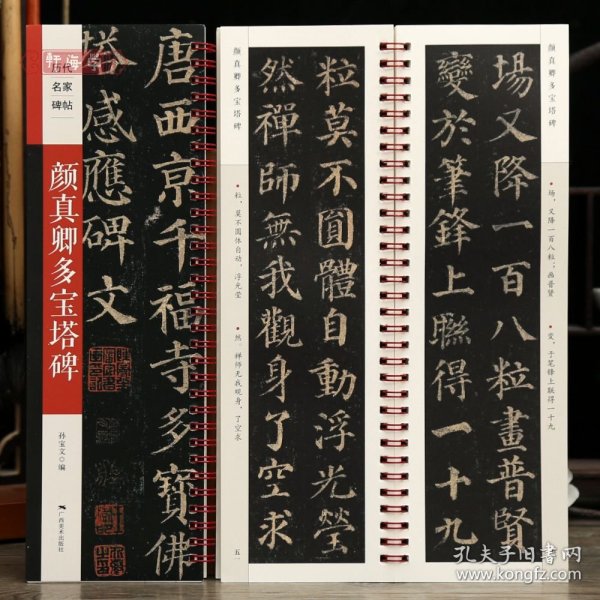 轩海阁
历代
名家
碑帖
颜真卿多宝塔碑
孙宝文 编
广西美术出版社
唐西京千福寺多寶佛
塔感應碑文
颜真卿多宝塔碑
粒莫不圓體自動浮光瑩
然禪師無我觀身了空求
粒,莫不圆体自动,浮光莹
然。禅师无我观身,了空求
五一
颜真卿多宝塔碑
場又降一百八粒畫普賢
變於筆鋒上聯得一十九
场,又降一百八粒;画普贤
变,于笔锋上联得一十九
孔夫子旧书网
www.kongfz.com